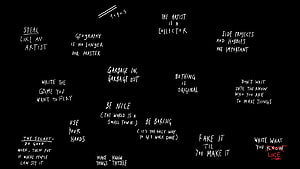 STEAL
LIKE AN
ARTIST
GEOGRAPHY
IS NO LONGER
OUR MASTER
THE ARTIST
IS A
COLLECTOR
SIDE PROJECTS
AND HOBBIES
ARE IMPORTANT
WRITE THE
GAME YOU
WANT TO PLAY
GARBAGE IN,
GARBAGE OUT
NOTHING
IS
ORIGINAL
DON'T WAIT
UNTIL YOU KNOW
WHO YOU ARE
TO MAKE THINGS
USE
YOUR
HANDS
BE NICE
(THE WORLD IS A
SMALL TOWN)
BE BORING
(IT'S THE ONLY WAY
TO GET WORK DONE)
FAKE IT
'TIL
YOU MAKE IT
WRITE WHAT
YOU KNOW
LIKE
THE SECRET:
DO GOOD
WORK, THEN PUT
IT WHERE PEOPLE
CAN SEE IT
THYSELF